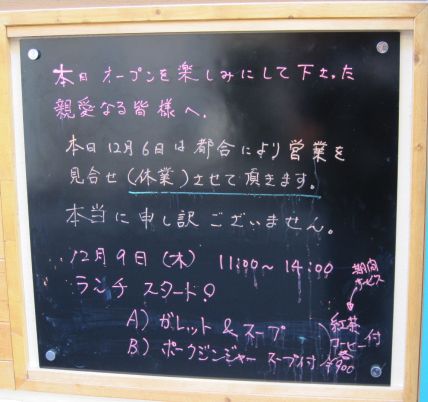 本日 オープンを楽しみにして下さった
親愛なる皆様へ.
本日12月6日は都合により営業を
見合せ(休業)させて頂きます。
本当に申し訳ございません。
12月9日(木) 11:00〜14:00
ランチ スタート!
期間
サービス
A) ガレット & スープ
B) ポークジンジャー スープ付
紅茶
コーヒー付
各
¥900